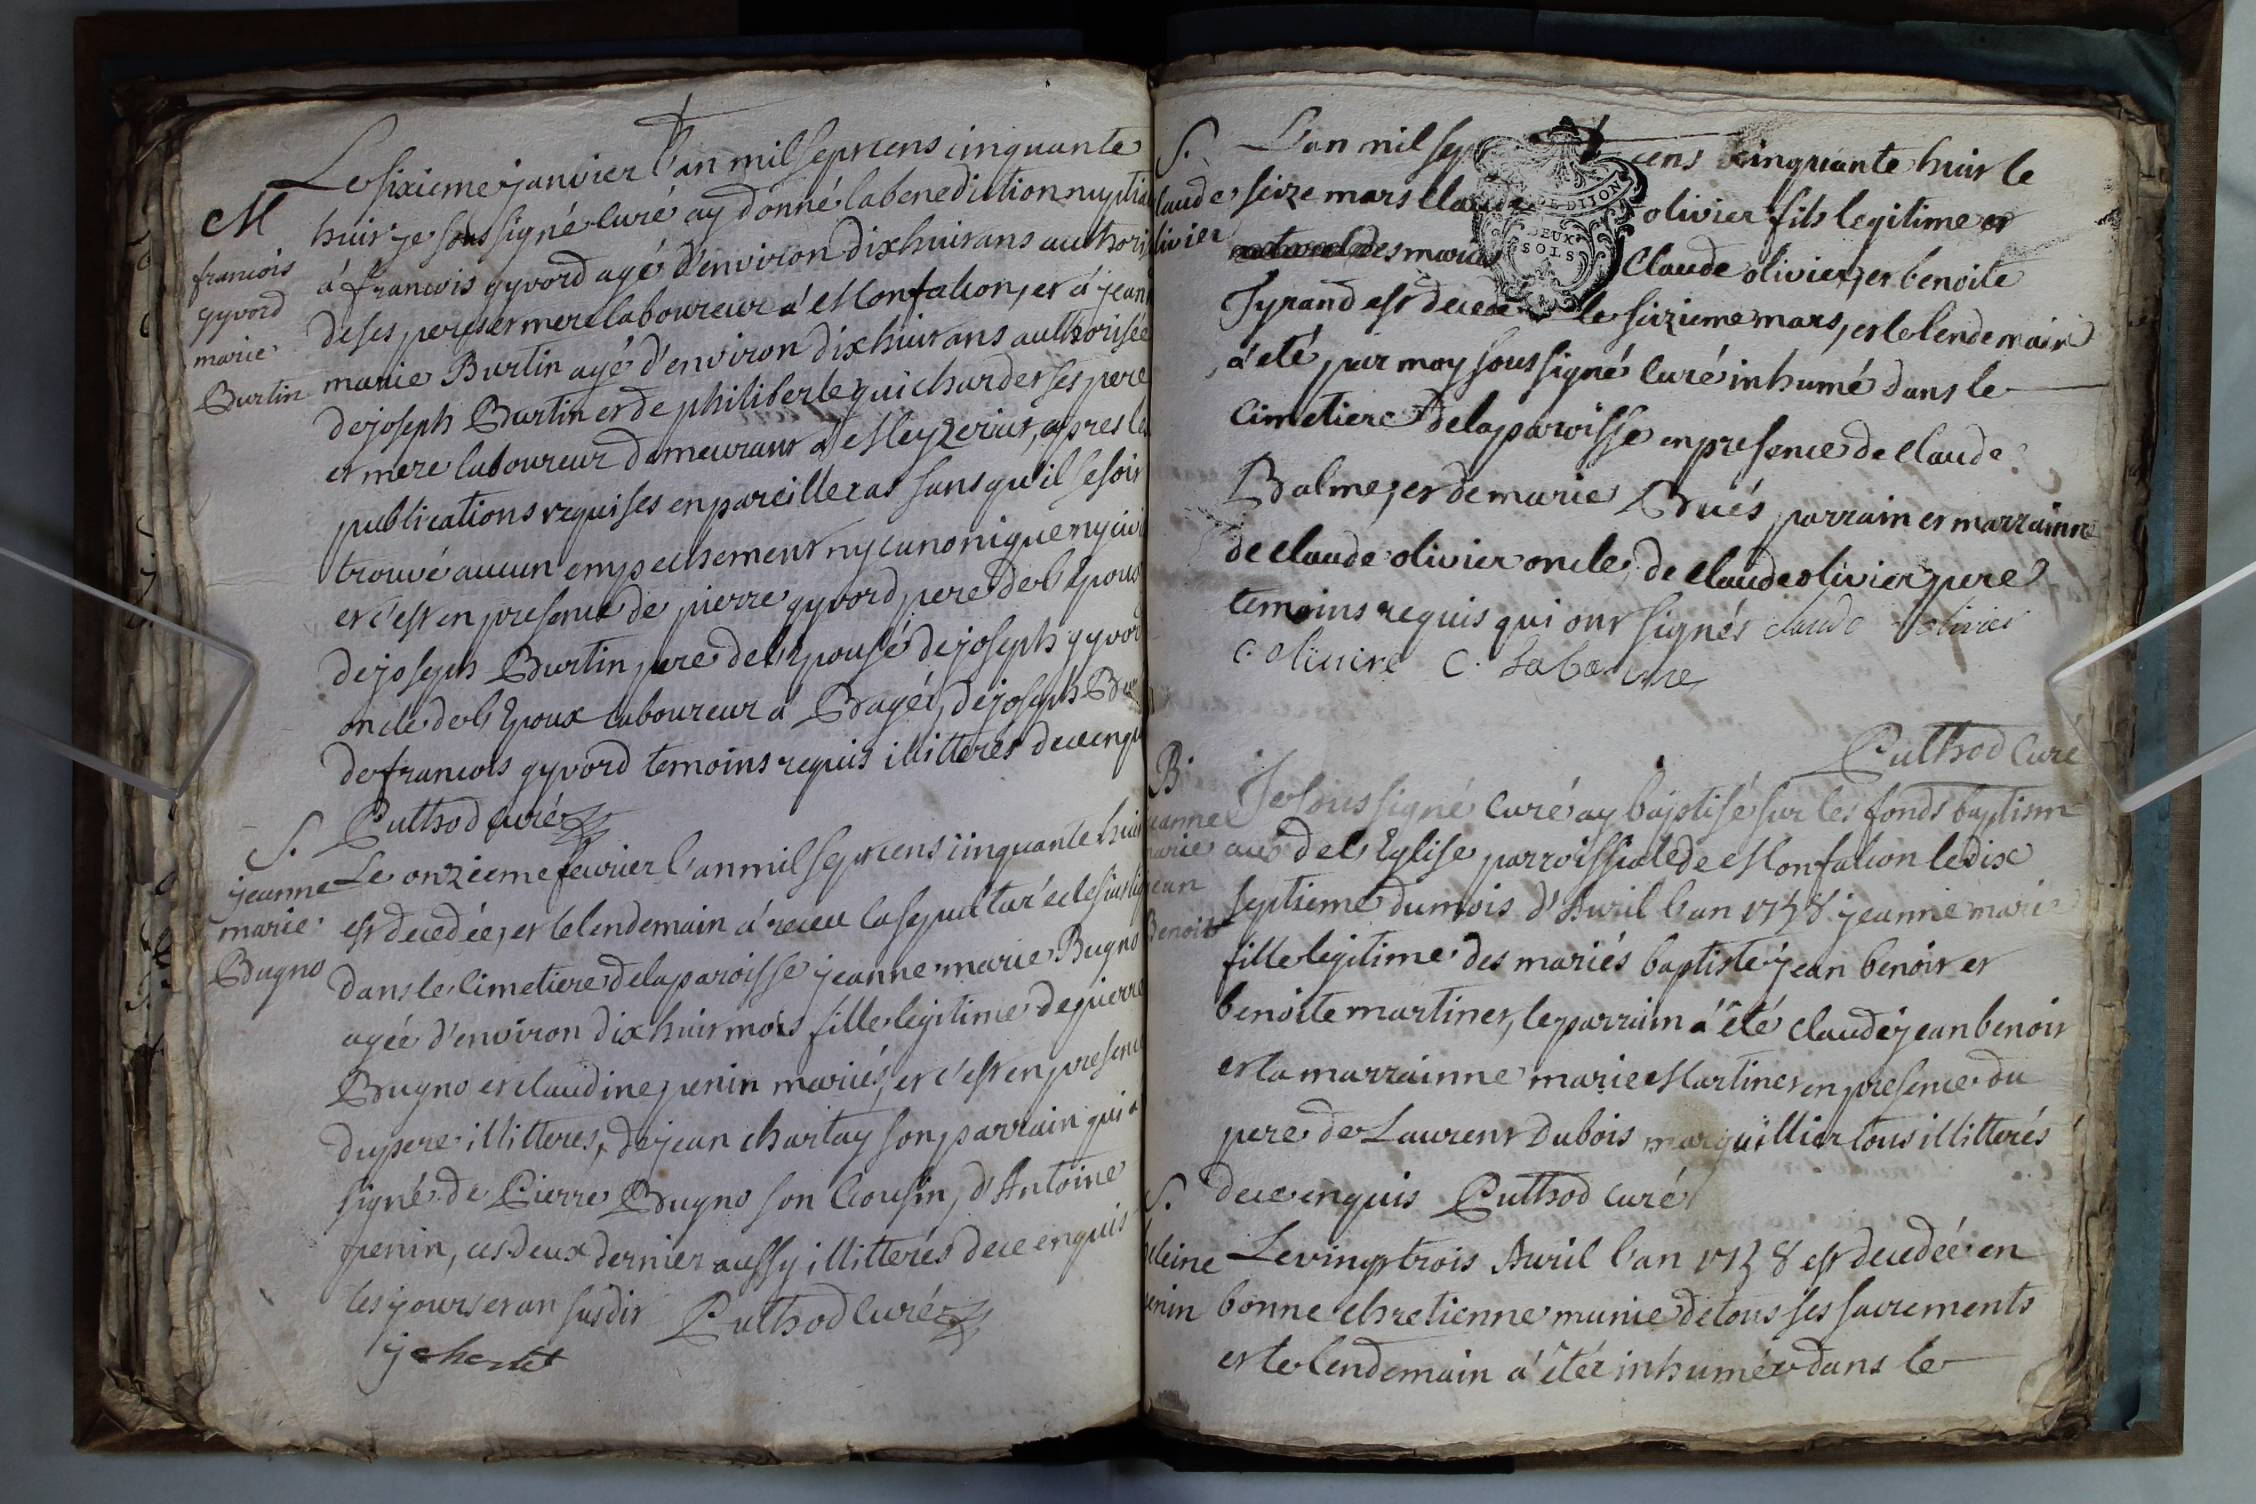 Le sixieme janvier l'an mil sept cens cinquante
M
huit je sous signé curé ay donné la benediction nuptia
francois
gyvord
marie
Burtin
á francois gyvord agé d'environ dix huit ans authori
de ses pere et mere laboureur á Monfalcon, et á jean
marie Burtin agé d'environ dix huit ans authorisée
de joseph Burtin et de philiberte guichardet ses pere
et mere laboureur demeurant á Meyzeriat, apres le
publications requises en pareille cas sans qu'il se soit
trouvé aucun empechement ny canonique ny civi
et c'est en presence de pierre gyvord pere de l'Epoux
de joseph Burtin pere de l'Epousé de joseph gyvord
oncle de l'Epoux laboureur á Bagéi, de joseph
de francois gyvord temoins requis illitteres de ce enqu
Puthod curé
S.
jeanne
marie
Bugno
Le onzieme fevrier l'an mil sept cens cinquante hui
est decedée, et le lendemain á receu la sepultur
dans le cimetiere de la paroisse jeanne marie Bugno
agée d'environ dix huit mois fille legitime de pierre
Bugno et claudine penin mariés, et c'est en presenc
du pere illitteres, de jean chartay son parrain qui a
signé de Pierre Bugno son Cousin, d'Antoine
penin, ces deux dernier aussy illitterés de ce enquis
les jours et an susdit Puthod Curé
S.
laude
livier
L'an mil sep cens cinquante huit le
seize mars Claude olivier fils legitime et
naturel des mariés Claude olivier, et benoite
Tyrand est decedé le seizieme mars, et le lendemain
a eté par moy sous signé Curé inhumé dans le
cimetiere de la paroisse en presence de Claude
Balme, et de marie Bués parrain et marrainne
de Claude olivier oncle, de Claude olivier pere
temoins requis qui ont signés claude olivier
c. olivire C.
Puthod Curé
B.
eanne
arie
jean
Benoit
Je sous signé Curé ay baptisé sur les fonds baptism
aux de l'Eglise parroissiale de Monfalcon le dix
septieme du mois d'Avril l'an 1758 jeanne mari
fille legitime des mariés baptiste jean benoit et
benoite martinet, le parrain á été claude jean benoit
et la marrainne marie Martinet en presence du
pere de Laurent Dubois marguillier tous illitterés
de ce enquis Puthod Curé
S.
leine
enin
Le vingt trois Avril l'an 1758 est decedée en
bonne chretienne munie de tous ses sacrements
et le lendemain á étée inhumée dans le
DE DIJON
DEUX
SOLS